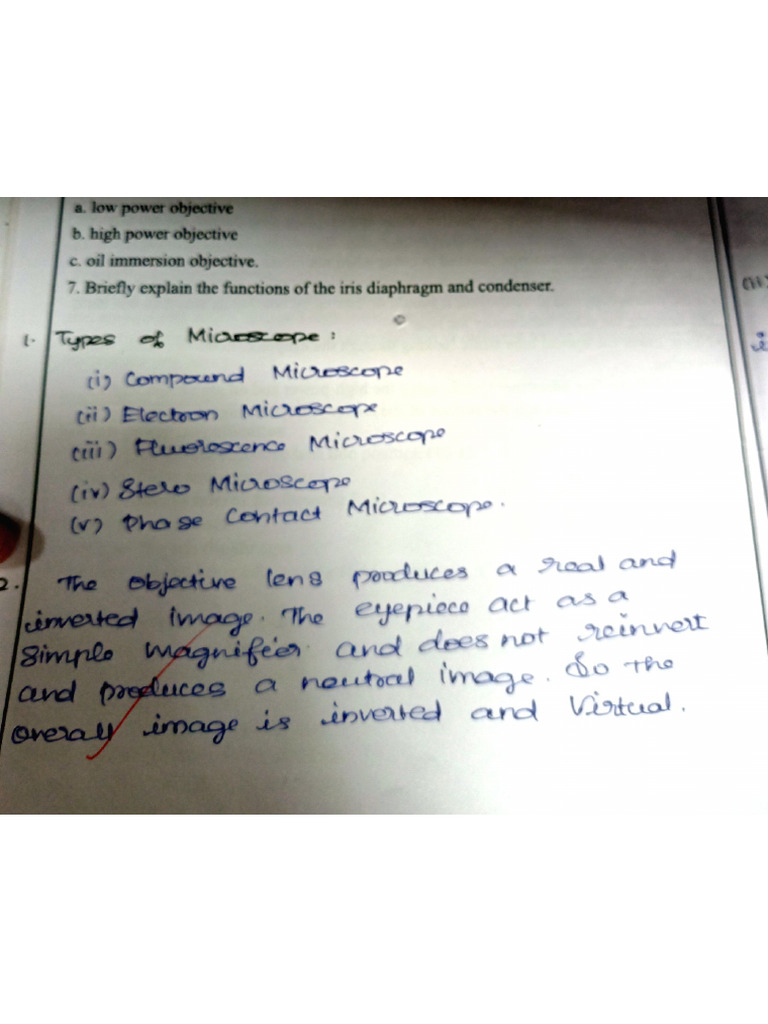 a. low power objective
b. high power objective
c. oil immersion objective.
7. Briefly explain the functions of the iris diaphragm and condenser.
1. Types of Microscope :
(i) Compound Microscope
(ii) Electron Microscope
(iii) Fluorescence Microscope
(iv) Stero Microscope
(v) Phase Contact Microscope.
2. The objective lens produces a real and
inverted image. The eyepiece act as a
simple magnifier and does not reinvert
and produces a neutral image. So the
overall image is inverted and Virtual.
(ii)